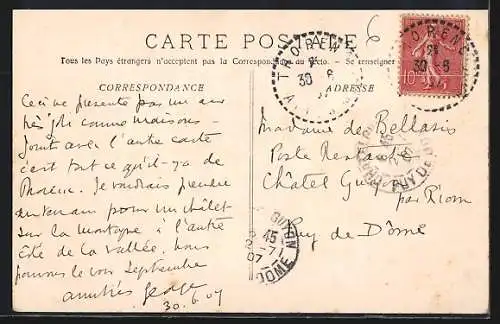 CARTE POSTALE
Tous les Pays étrangers n'acceptent pas la Correspondance au recto. - Se renseigner
CORRESPONDANCE
ADRESSE
6
THORENS
21
30 - 6
THORENS
21
30 - 6
10 c
Ceci ne présente pas un aus
très joli comme maisons -
Joint avec l'autre carte
c'est tout ce qu'il-y-a de
Thorens. Je voudrais prendre
un terrain pour un châlet
sur la montagne à l'autre
côté de la vallée. Nous
pouvons le voir Septembre
amitiés George
30.6.07
Madame de Bellaris
Poste Restante
Châtel Guy
par Riom
Puy de Dôme
45
2-7
07
DOME
PUY-DE-